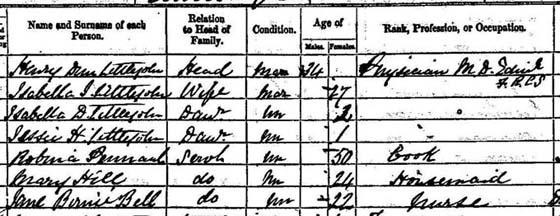 Name and Surname of each Person. Relation to Head of Family. Condition. Age of Males. Females. Rank, Profession, or Occupation.
Henry Dun Littlejohn Head Mar 34 Physician M.D. Edin
F.R.C.S
Isabella J Littlejohn Wife Mar 27
Isabella D Littlejohn Daur Un 2 "
Jessie H Littlejohn Daur Un 1 "
Robina Servt Un 50 Cook
Mary Hill do Un 24 Housemaid
Jane Birnie Bell do 22 Nurse